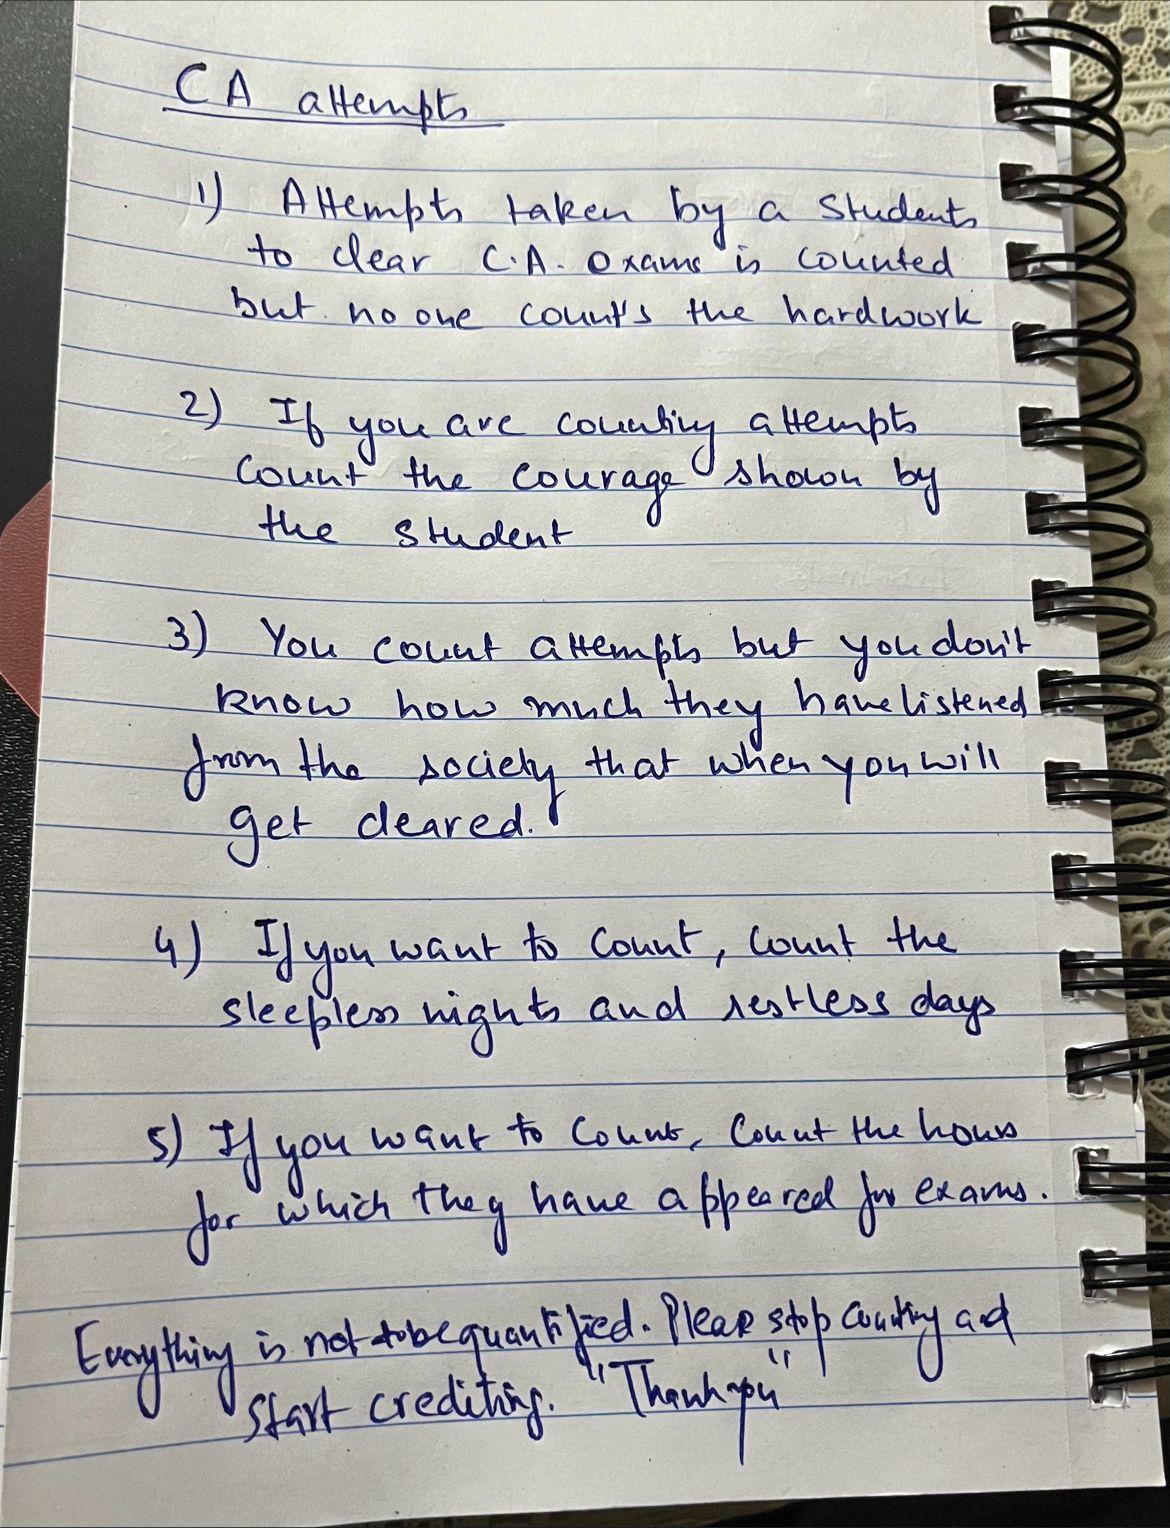 CA attempts
1) Attempts taken by a students
to clear C.A. exams is counted
but no one count's the hardwork
2) If you are counting attempts
count the courage shown by
the student
3) You count attempts but you don't
know how much they have listened
from the society that when you will
get cleared.
4) If you want to count, count the
sleepless nights and restless days
5) If you want to count, count the hours
for which they have appeared for exams.
Everything is not to be quantified. Please stop counting and
start crediting. "Thank you"